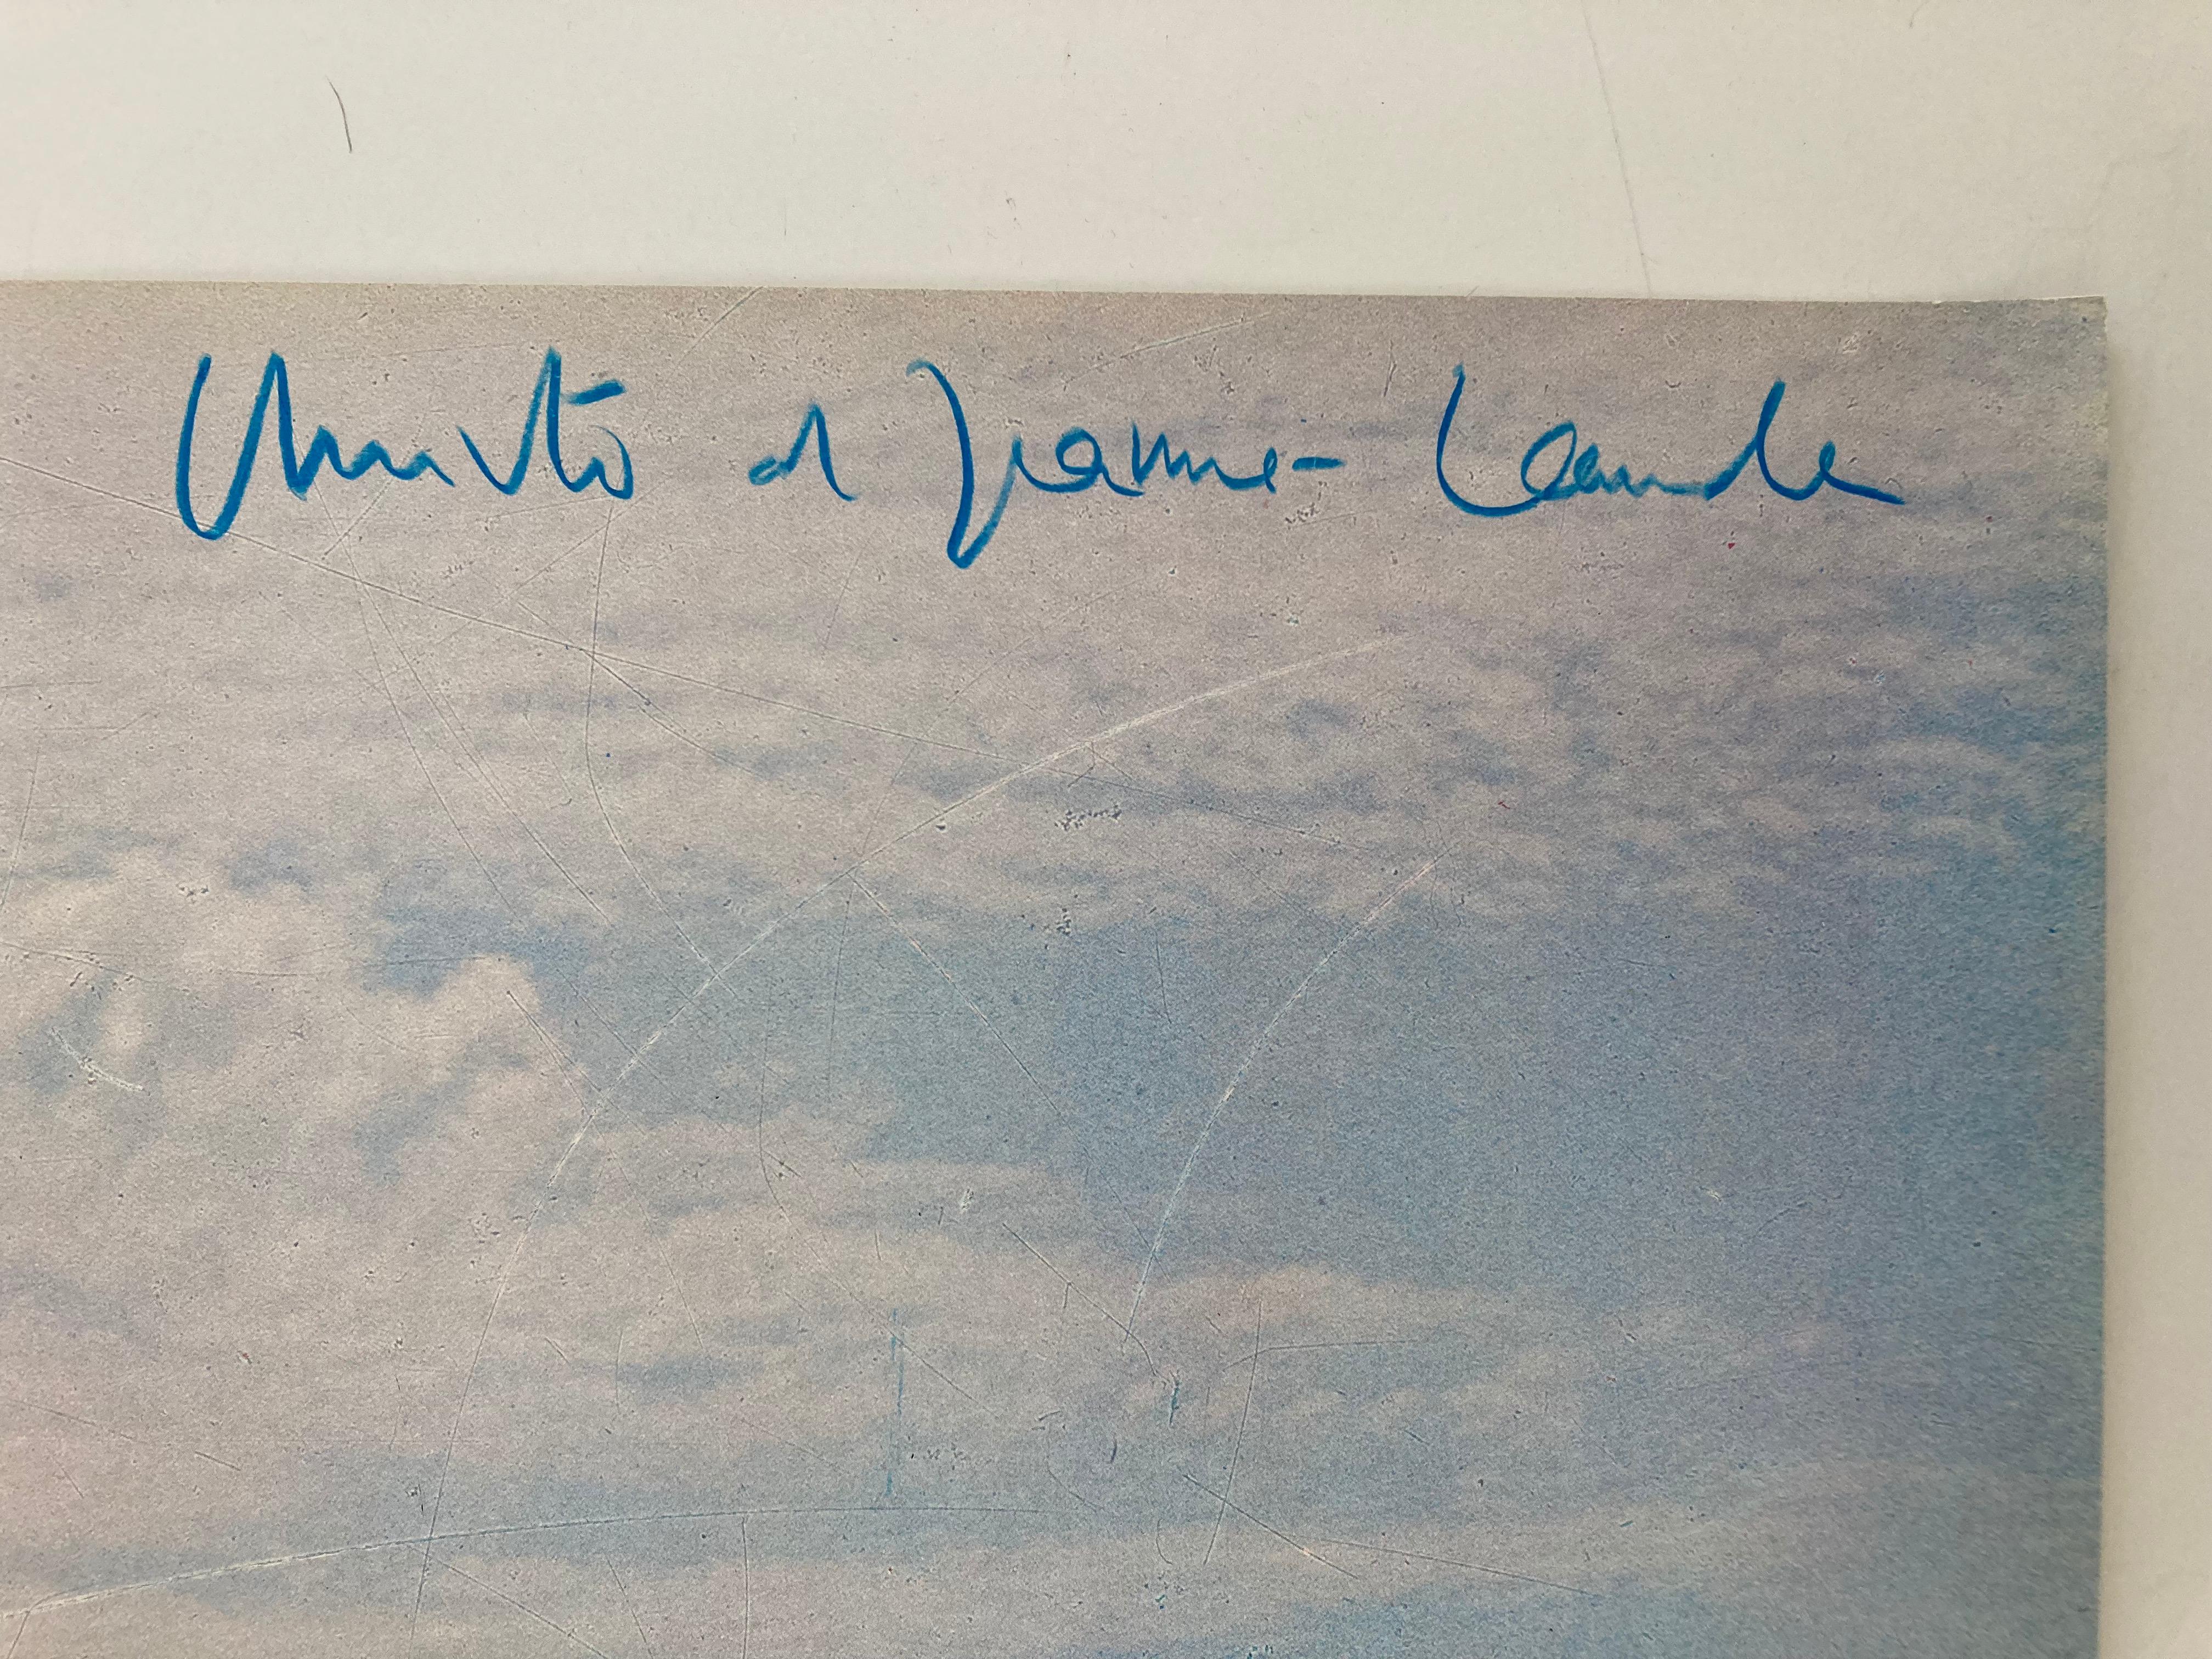 Christo et Jeanne-Claude